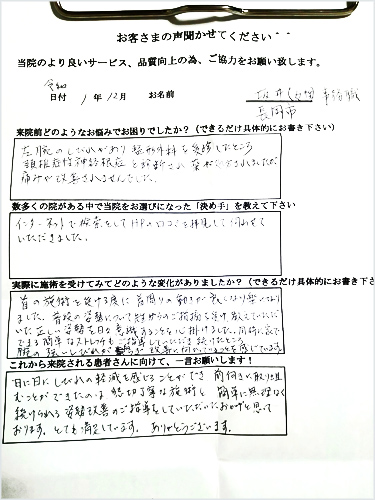 お客さまの声聞かせてください
当院のより良いサービス、品質向上の為、ご協力をお願い致します。
令和
日付 1年12月 お名前
長岡市
来院前どのようなお悩みでお困りでしたか?(できるだけ具体的にお書き下さい)
左腕のしびれがあり整形外科を受診したところ
頚椎症性神経根症と診断され
痛みが改善されませんでした。
数多くの院がある中で当院をお選びになった「決め手」を教えて下さい
インターネットで検索をしてHPの口コミを拝見して
いただきました。
実際に施術を受けてみてどのような変化がありましたか?(できるだけ具体的にお書き下さ
首の施術を受ける度に首周りの動きが良くなり
ました。普段の姿勢について
正しい姿勢を日々意識することを心掛けました。同時に家で
できる簡単なストレッチもご指導していただき続けたところ
腕の強いしびれが 改善に
これから来院される患者さんに向けて、一言お願いします!
日に日にしびれの軽減を感じることができ、前向きに取り組
むことができたのは懇切丁寧な施術と、簡単に無理なく
続けられる姿勢改善のご指導をしていただいたおかげと思って
おります。とても満足しています。ありがとうございます。